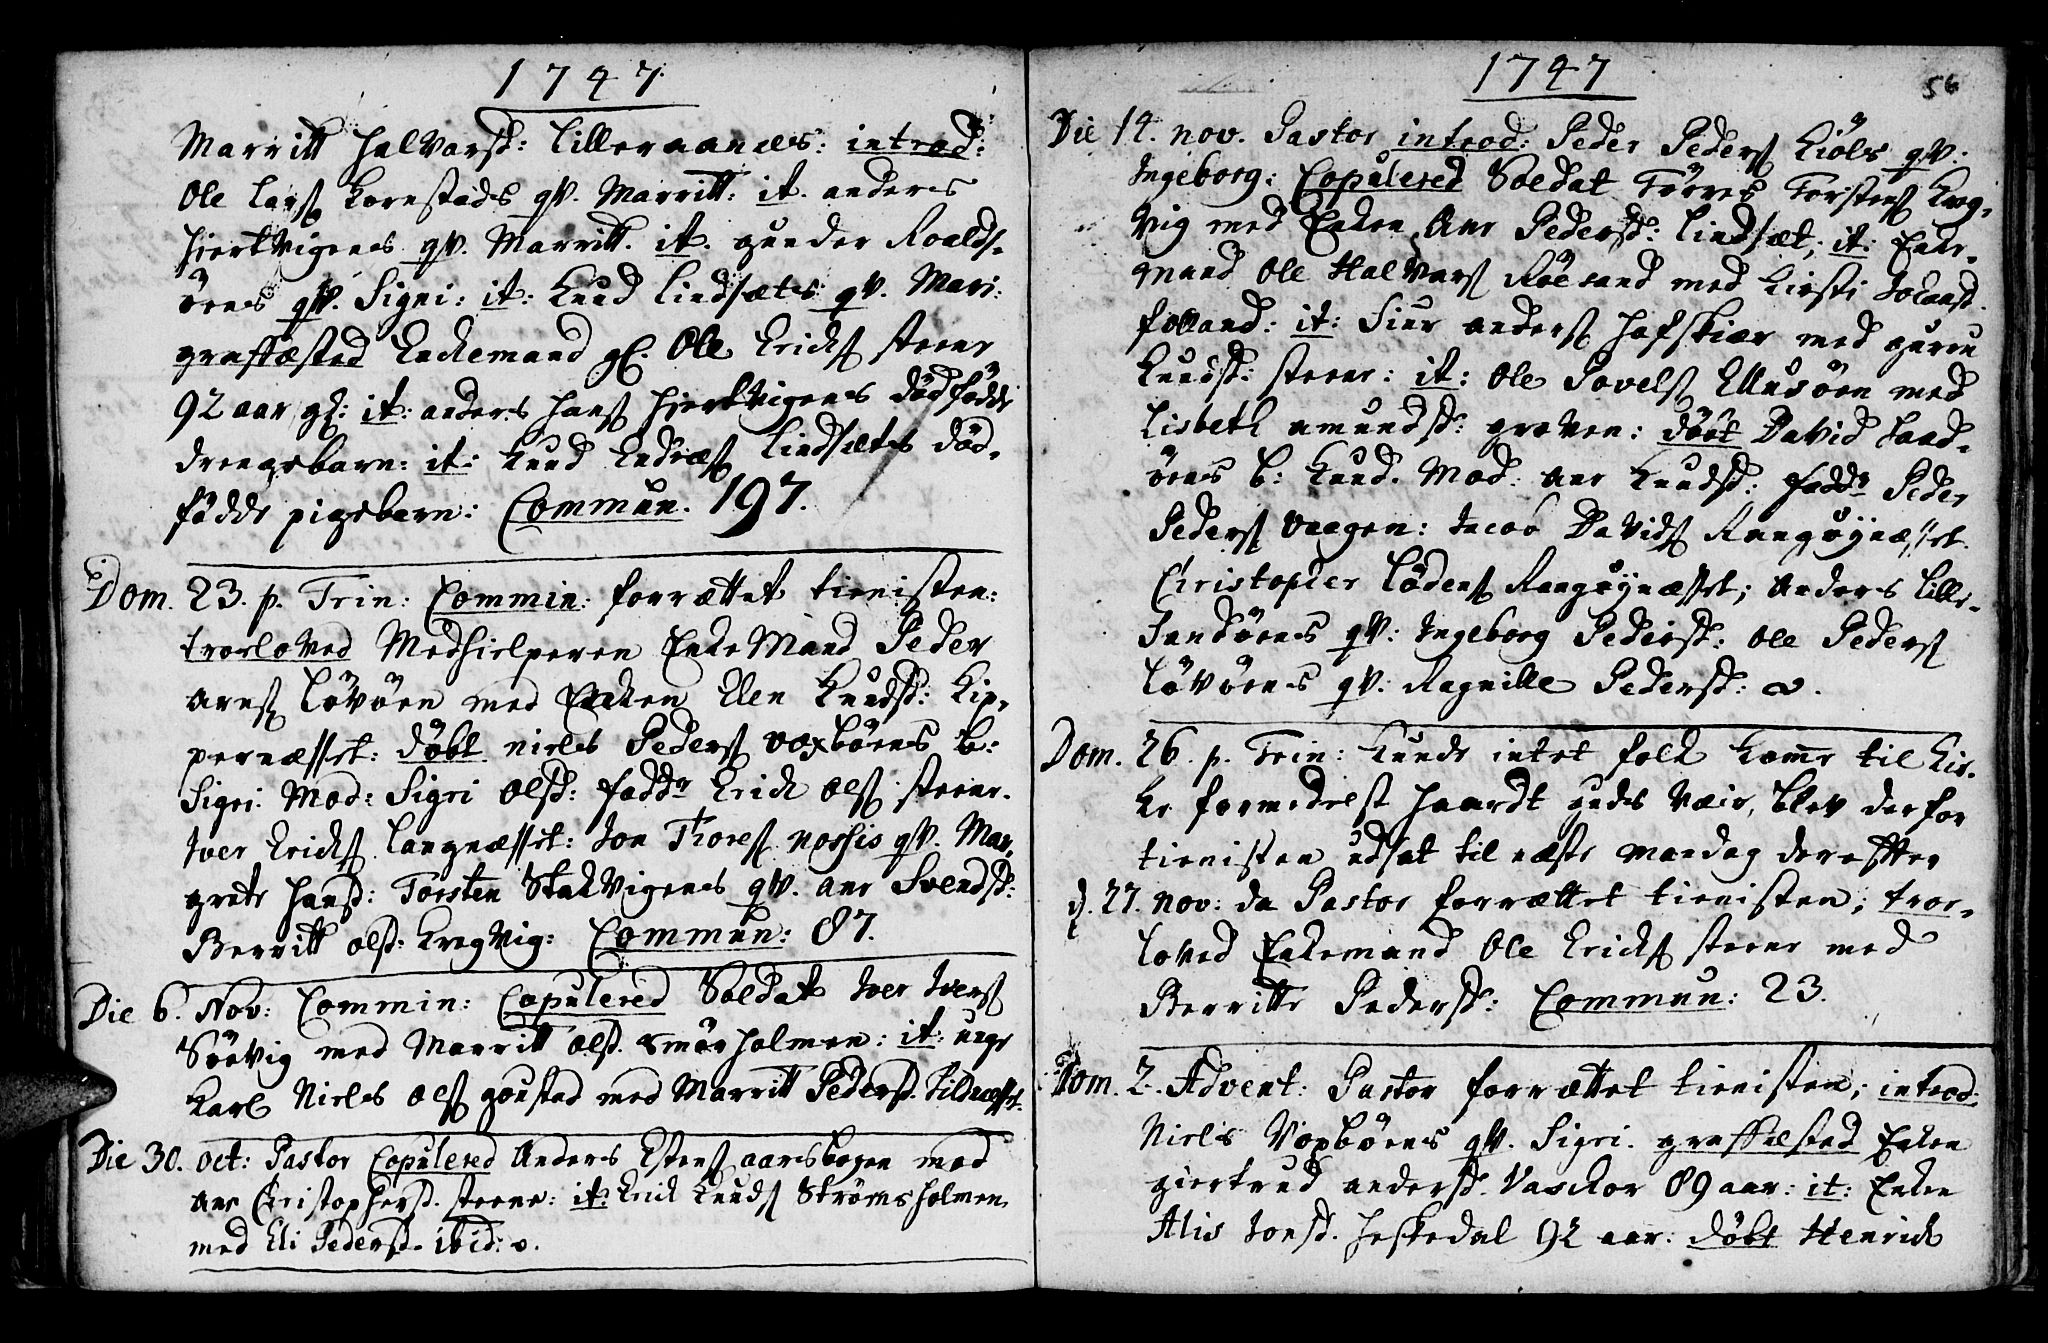 1747.
Marritt Halvarsd: Lilleraanæs: introd:
Ole Lars Kornstads qv. Marritt: it. anders
Hierkvigens qv. Marritt. it. gunder Roalds-
öens qv. Signi: it: Knud Lindsæts qv. Mari:
graffæsted Enckemand gl. Ole Ericks steene
92 aar gl: it: anders Hans Hierkvigens dödfödde
drengebarn: it: Knud Lindsæts död-
födde pigebarn: Commun. 197.
Dom. 23. p. Trin: Commin: forrættet tienisten:
troeloved Medhielperen EnkeMand Peder
arns Lövöen med Encken Elen Knudsd: Kip-
pernæsset: döbt niels Peders voxböens b:
Sigri. Mod: Sigri olsd: fadd^r Erick ols steene.
Iver Ericks Langnæsset: Jon Thores nossis qv. Mar-
grete Hansd: Torsten Stakvigens qv. ane Svendsd:
Berritt olsd: Kregvig: Commun: 87.
Die 6. Nov: Commin: Copulered Soldat Iver Ivers
Söevig med Marritt olsd. Smörholmen: it: unge
Karl Niels ols gousted med Marritt Pedersd. Lildnæsset.
Die 30. oct: Pastor Copulered Anders Estens aarsbogen med
ane Christophersd. steene: it: Erick Knuds Strömsholmen
med Eli Pedersd. ibid:
1747
56
Die 14. nov. Pastor introd: Peder Peders Kiöls qv.
Ingeborg: Copulered Soldat Torres Torstens Kreg-
vig med Enken Ane Pedersd: Lindsæt; it: Enke-
mand Ole Halvars Röesand med Kirsti Johansd.
folland: it: Siur anders Hafskiær med guru
Knudsd: steene: it: Ole Povels Ellusöen med
Lisbeth amundsd: greven: döbt David Sand-
öens b: Knud. Mod: ane Knudsd: fadd^r Peder
Peders vaagen: Jacob Davids Rangöynæsset.
Christopher Lödens Rangöynæsset; Anders Lille-
Sundöens qv: Ingeborg Pedersd: Ole Peders
Lövöens qv: Ragnille Pedersd:
Dom. 26 p. Trin: Kunde intet folk kome til Kir-
ke formedelst haardt guds Væir, blev derfor
tienisten udsat til næste mandag derefter
d. 27. nov: da Pastor forrættet tienisten; troe-
loved Enkemand Ole Ericks steene med
Berritte Pedersd: Commun: 23.
Dom. 2. Advent: Pastor forrættet tienisten; introd:
Niels Voxböens qv. Sigri. graffæsted Enken
giertrud andersd. Vaschor 89 aar: it: Enken
Alis Jonsd. Heskedal 92 aar: döbt Henrick